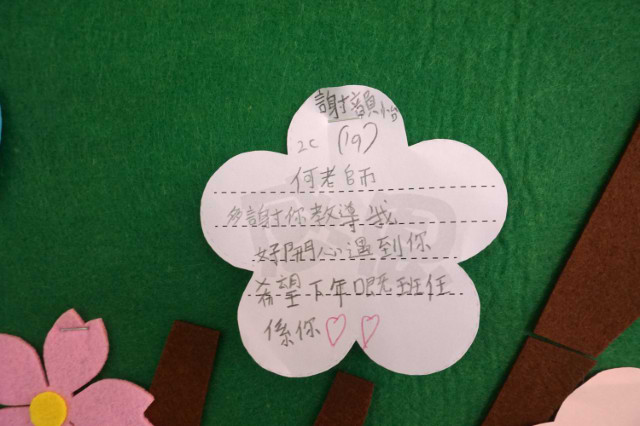 謝韻怡
2C (19)
何老師
多謝你教導我
好開心遇到你
希望下年嘅班任
係你♡♡